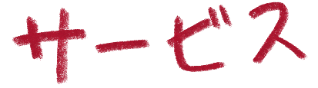 サービス